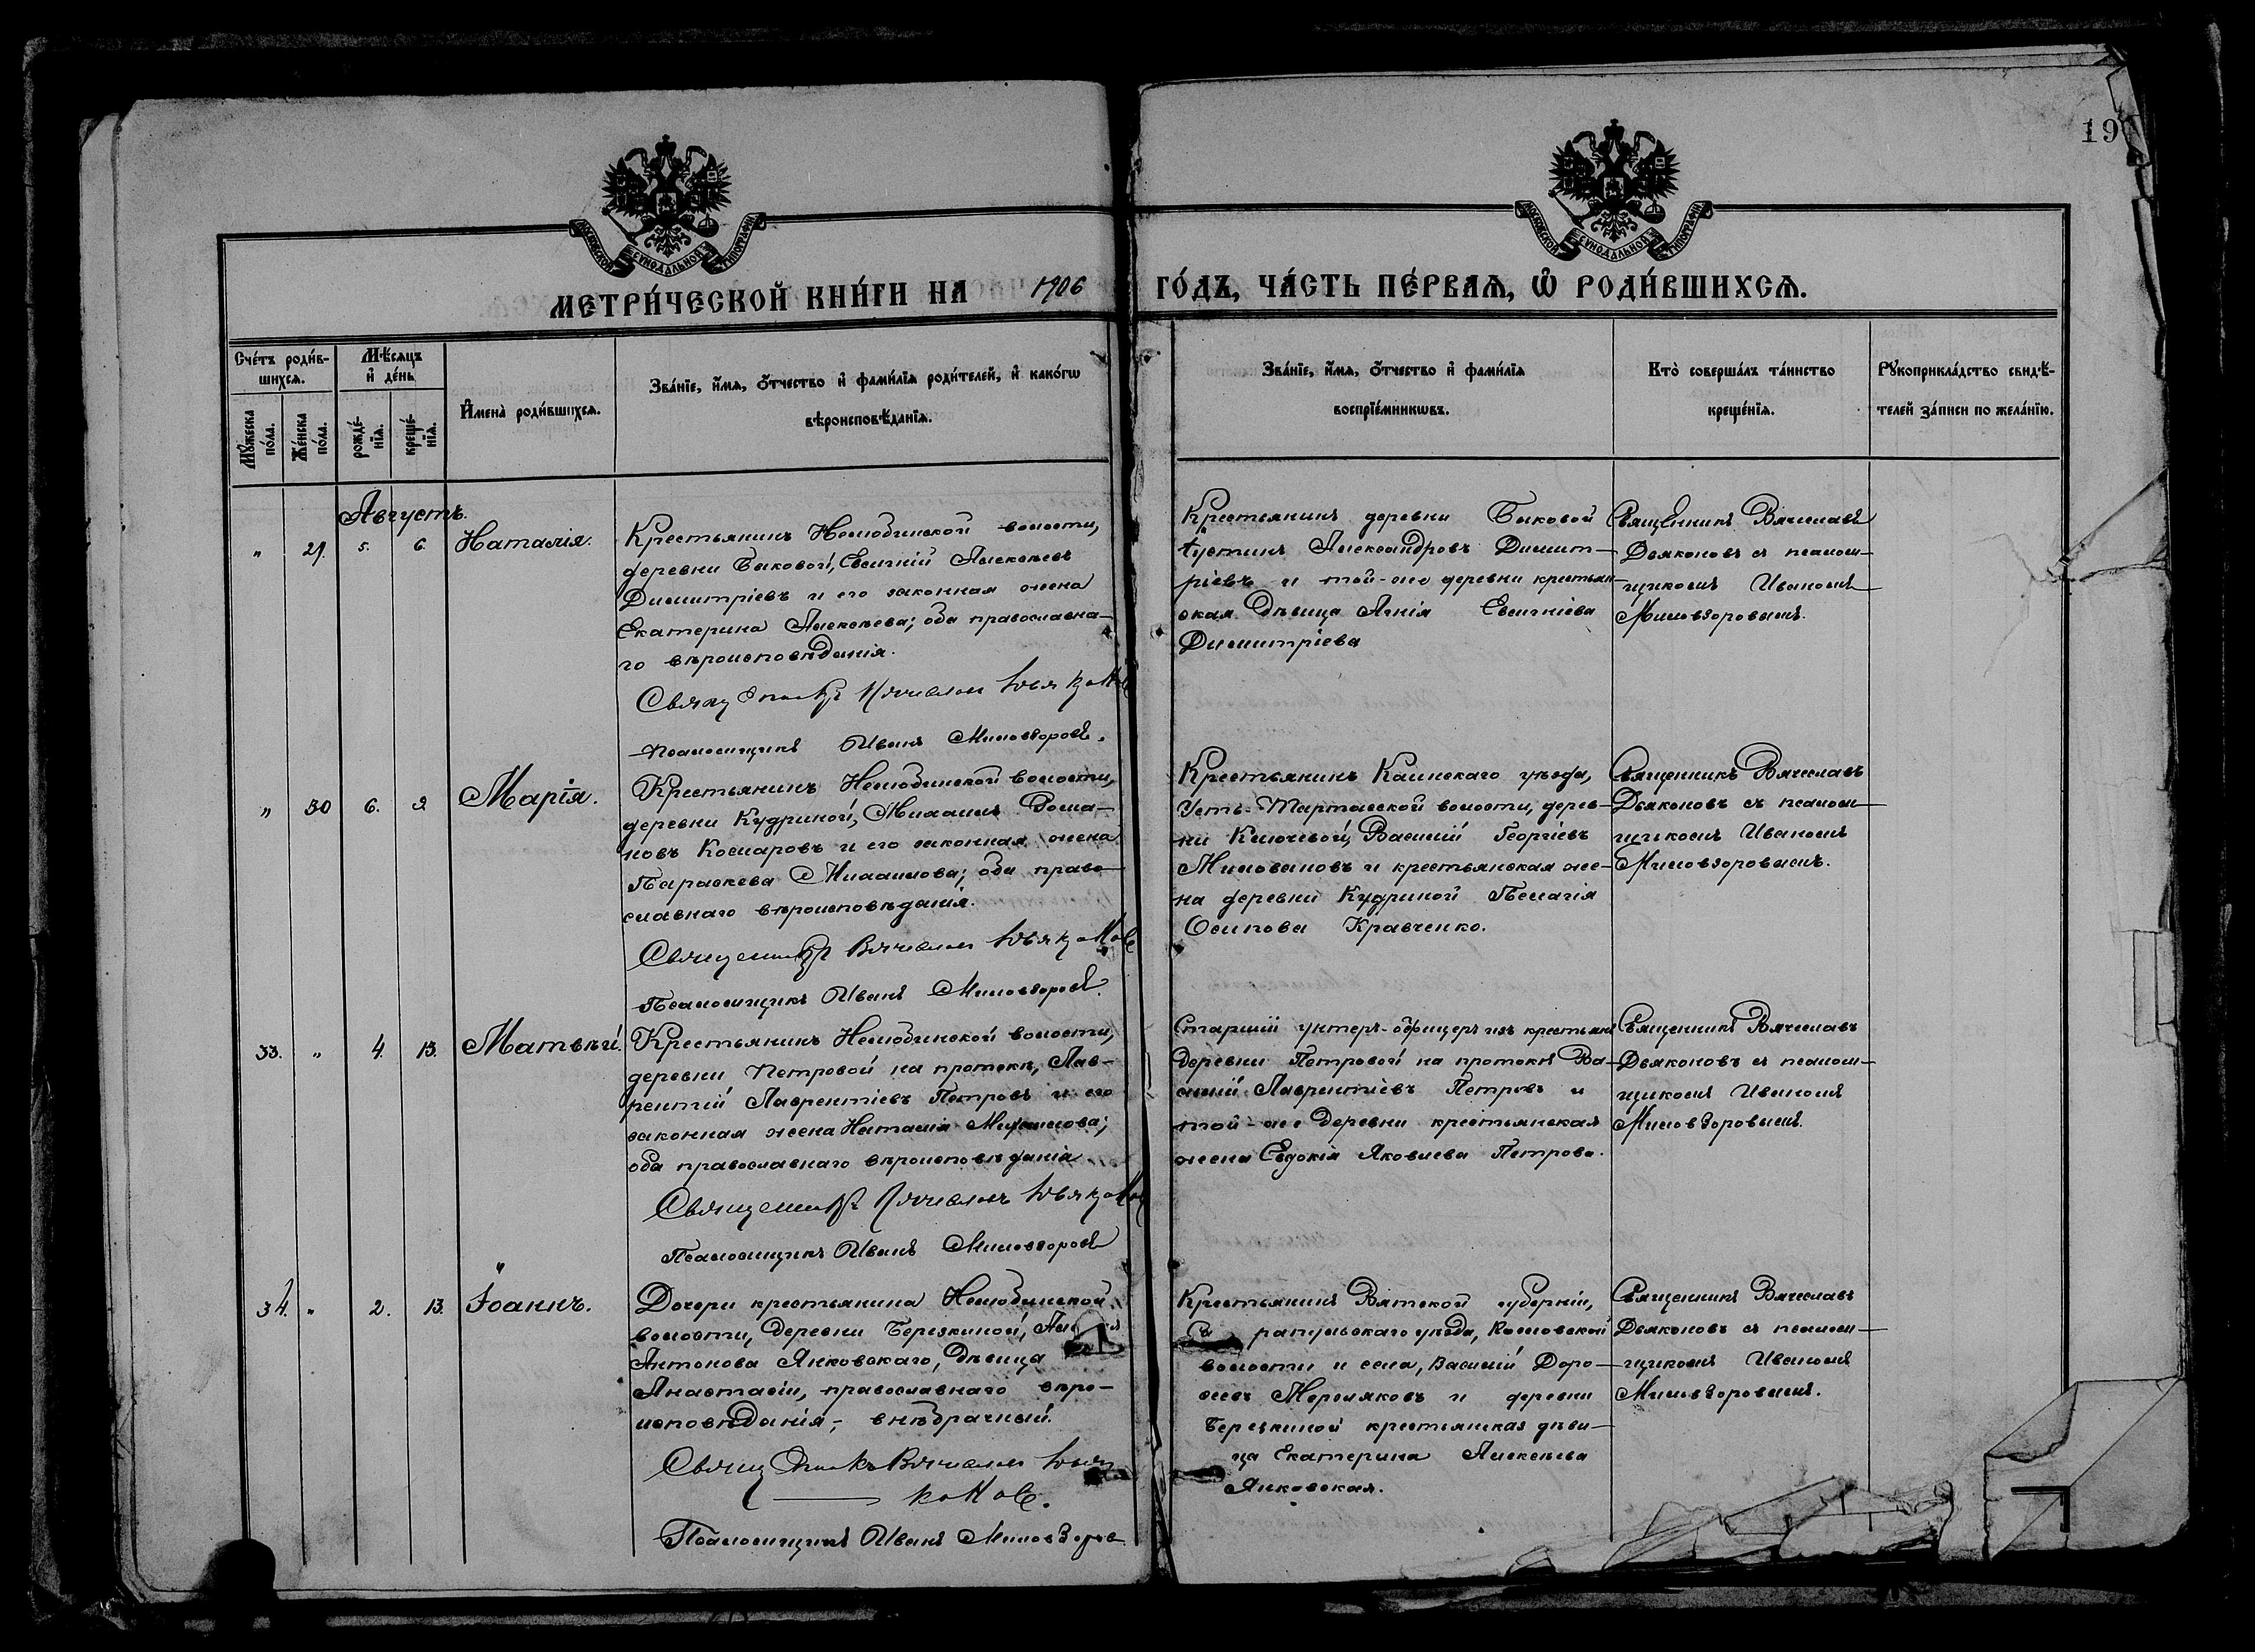 19
МОСКОВСКОЙ СѴНОДАЛЬНОЙ ТИПОГРАФІИ
МОСКОВСКОЙ СѴНОДАЛЬНОЙ ТИПОГРАФІИ
МЕТРИ́ЧЕСКОЙ КНИ́ГИ НА 1906 ГО́ДЪ, ЧА́СТЬ ПЕ́РВАѦ, Ѡ҆ РОДИ́ВШИХСѦ.
Сче́тъ роди́в-
шихсѧ.
Мꙋ́жеска по́ла.
Же́нска по́ла.
Мѣ́сѧцъ и҆ де́нь
рожде́-
нїѧ.
креще́-
нїѧ.
И҆мена̀ роди́вшихсѧ.
Зва́нїе, и҆́мѧ, ѻ҆́тчество и҆ фами́лїѧ роди́телей, и҆ како́гѡ
вѣроисповѣ́данїѧ.
Зва́нїе, и҆́мѧ, ѻ҆́тчество и҆ фами́лїѧ
воспрїе́мникѡвъ.
Кто̀ соверша́лъ та́инство
креще́нїѧ.
Рꙋкоприкла́дство свидѣ́-
телей за́писи по жела́нїю.
Августъ.
„ 29. 5. 6. Наталія.
Крестьянинъ Нелюбинской волости,
деревни Быковой, Евгеній Алексѣевъ
Димитріевъ и его законная жена
Екатерина Алексѣева; оба православна-
го вѣроисповѣданія.
Священникъ Вячеславъ Дьяконовъ
Псаломщикъ Иванъ Миловзоровъ.
Крестьянинъ деревни Быковой
Іустинъ Александровъ Димит-
ріевъ и той-же деревни крестьян-
ская дѣвица Агнія Евгеніева
Димитріева
Священникъ Вячеславъ
Дьяконовъ съ псалом-
щикомъ Иваномъ
Миловзоровымъ.
„ 30 6. 9 Марія.
Крестьянинъ Нелюбинской волости,
деревни Кудриной, Михаилъ Рома-
новъ Комаровъ и его законная жена
Параскева Михаилова; оба право-
славнаго вѣроисповѣданія.
Священникъ Вячеславъ Дьяконовъ
Псаломщикъ Иванъ Миловзоровъ.
Крестьянинъ Каинскаго уѣзда,
Усть-Тартасской волости, дерев-
ни Ключевой, Василій Георгіевъ
Миловановъ и крестьянская же-
на деревни Кудриной Пелагія
Осипова Кравченко.
Священникъ Вячеславъ
Дьяконовъ съ псалом-
щикомъ Иваномъ
Миловзоровымъ.
33. „ 4. 13. Матвѣй.
Крестьянинъ Нелюбинской волости,
деревни Петровой на протокѣ, Лав-
рентій Лаврентіевъ Петровъ и его
законная жена Наталія Михаилова;
оба православнаго вѣроисповѣданія
Священникъ Вячеславъ Дьяконовъ
Псаломщикъ Иванъ Миловзоровъ
Старшій унтеръ-офицеръ изъ крестьянъ
деревни Петровой на протокѣ Ва-
силій Лаврентіевъ Петровъ и
той-же деревни крестьянская
жена Евдокія Яковлева Петрова.
Священникъ Вячеславъ
Дьяконовъ съ псалом-
щикомъ Иваномъ
Миловзоровымъ.
34. „ 2. 13. Іоаннъ.
Дочери крестьянина Нелюбинской
волости, деревни Березкиной,
Антонова Янковскаго, дѣвица
Анастасіи, православнаго вѣро-
исповѣданія,- внѣбрачный.
Священникъ Вячеславъ Дья-
коновъ.
Псаломщикъ Иванъ Миловзоровъ
Крестьянинъ Вятской губерніи,
Сарапульскаго уѣзда, Козловской
волости и села, Василій Доро-
ѳеевъ Мерзляковъ и деревни
Березкиной крестьянская дѣви-
ца Екатерина Алексѣева
Янковская.
Священникъ Вячеславъ
Дьяконовъ съ псалом-
щикомъ Иваномъ
Миловзоровымъ.